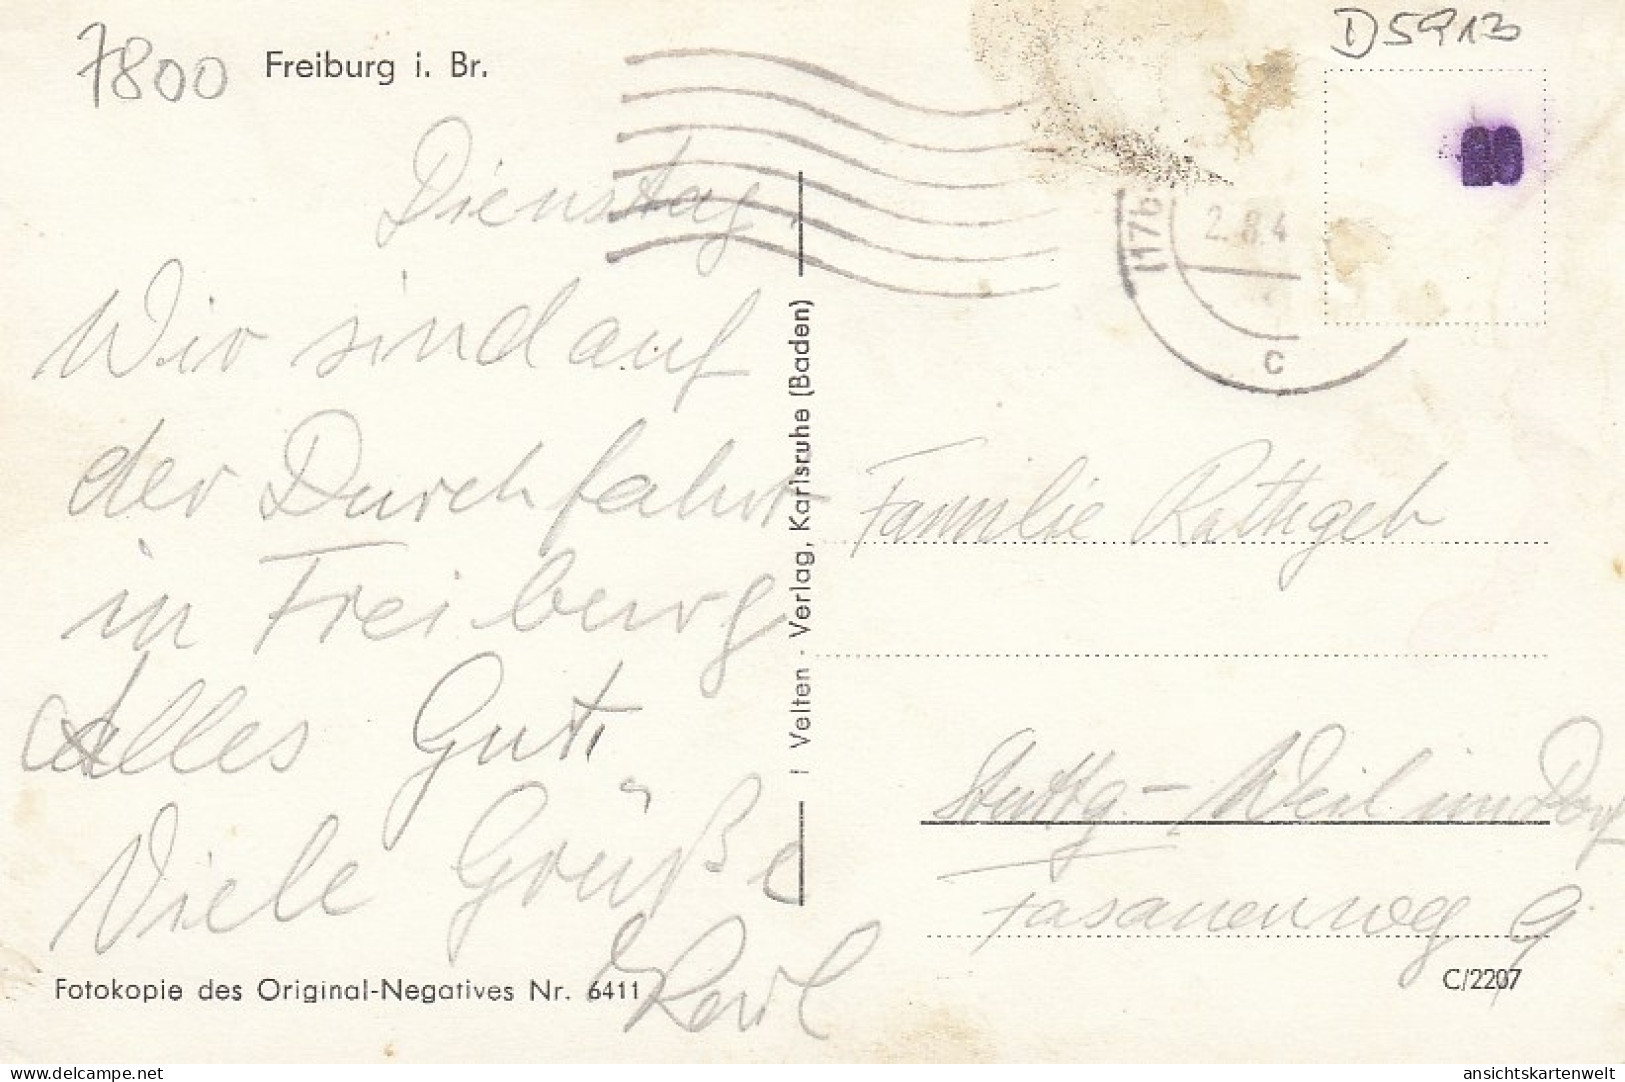 7800 Freiburg i. Br.
D5913
(17b
2.8.4
c
Dienstag,
Wir sind auf
der Durchfahrt
in Freiburg
Alles Gute
Viele Grüße
Karl
Fotokopie des Original-Negatives Nr. 6411
Velten - Verlag, Karlsruhe (Baden)
Familie Rathgeb
Stuttg.- Weil im Dorf
Fasanenweg 9
C/2207
delcampe.net
ansichtskartenwelt